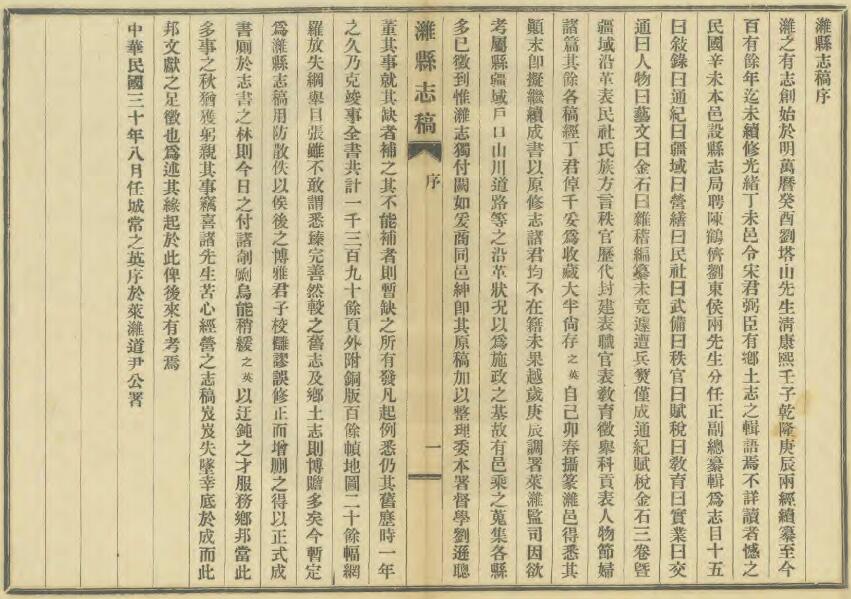 濰縣志稿序
濰之有志創始於明萬曆癸酉劉塔山先生清康熙壬子乾隆庚辰兩經續纂至今
百有餘年迄未續修光緒丁未邑令宋君弼臣有鄉土志之輯語焉不詳讀者憾之
民國辛未本邑設縣志局聘陳鶴儕劉東侯兩先生分任正副總纂輯爲志目十五
曰敘錄曰通紀曰疆域曰營繕曰民社曰武備曰秩官曰賦稅曰敎育曰實業曰交
通曰人物曰藝文曰金石曰雜稽編纂未竟遽遭兵燹僅成通紀賦稅金石三卷曁
疆域沿革表民社氏族方言秩官歷代封建表職官表敎育徵舉科貢表人物節婦
諸篇其餘各稿經丁君倬千妥爲收藏大半尙存之英自己卯春攝篆濰邑得悉其
顚末卽擬繼續成書以原修志諸君均不在籍未果越歲庚辰調署萊濰監司因欲
考屬縣疆域戶口山川道路等之沿革狀況以爲施政之基故有邑乘之蒐集各縣
多已徵到惟濰志獨付闕如爰商同邑紳卽其原稿加以整理委本署督學劉遜聰
濰縣志稿
序
一
董其事就其缺者補之其不能補者則暫缺之所有發凡起例悉仍其舊歷時一年
之久乃克竣事全書共計一千三百九十餘頁外附銅版百餘幀地圖二十餘幅網
羅放失綱舉目張雖不敢謂悉臻完善然較之舊志及鄉土志則博贍多矣今暫定
爲濰縣志稿用防散佚以俟後之博雅君子校讎謬誤修正而增刪之得以正式成
書廁於志書之林則今日之付諸剞劂烏能稍緩之英以迂鈍之才服務鄉邦當此
多事之秋猶獲躬親其事竊喜諸先生苦心經營之志稿岌岌失墜幸底於成而此
邦文獻之足徵也爲述其緣起於此俾後來有考焉
中華民國三十年八月任城常之英序於萊濰道尹公署